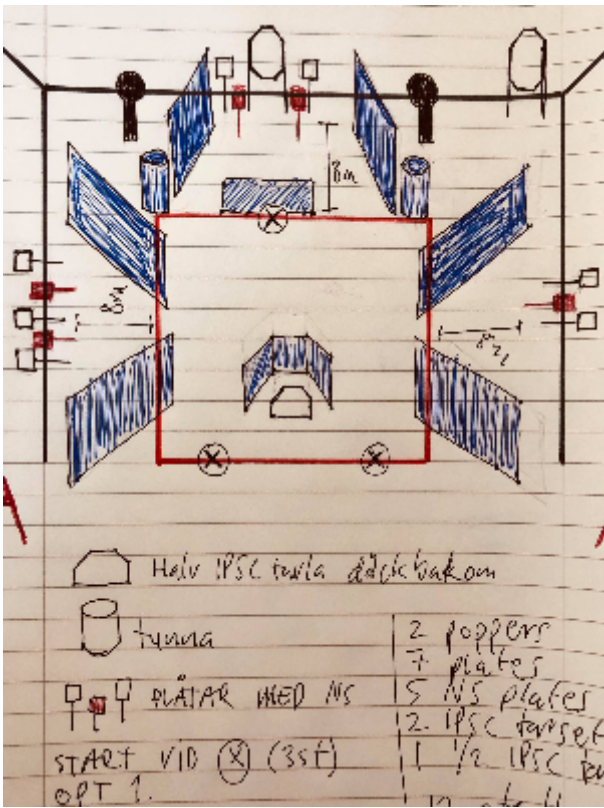 8m
8m
8m
Halv IPSC tavla däck bakom
tunna
PLÅTAR MED NS
START VID X (3st)
OPT 1.
2 poppers
7 plates
5 NS plates
2 IPSC target
1 1/2 IPSC